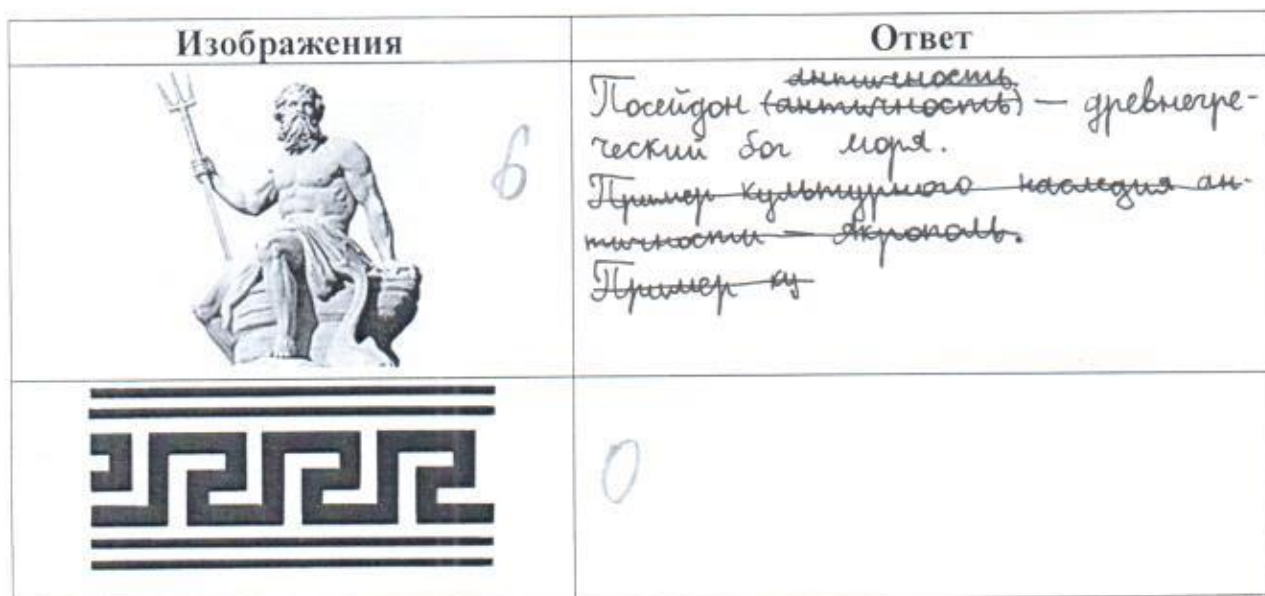 Изображения
Ответ
6
античность
Посейдон (античность) — древнегре-
ческий бог моря.
Пример культурного наследия ан-
тичности — Акрополь.
Пример ку
0